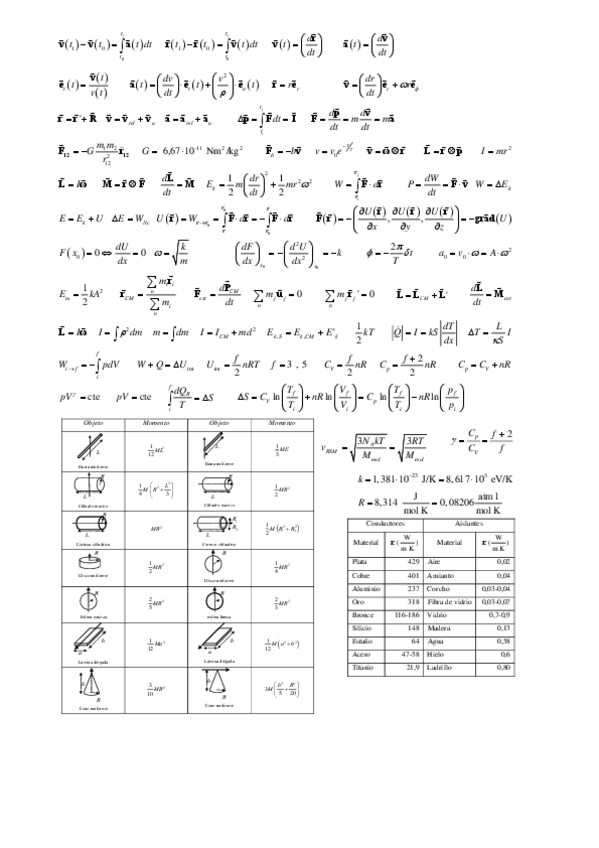 v⃗(t₁) − v⃗(t₀) = ∫ₜ₀^t₁ a⃗(t)dt r⃗(t₁) − r⃗(t₀) = ∫ₜ₀^t₁ v⃗(t)dt v⃗(t) = (dr⃗/dt) a⃗(t) = (dv⃗/dt)
e⃗ₜ(t) = v⃗(t)/v(t) a⃗(t) = (dv/dt)·e⃗ₜ(t) + (v²/ρ)·e⃗ₙ(t) r⃗ = re⃗ᵣ v⃗ = (dr/dt)e⃗ᵣ + ωre⃗_ϕ
r⃗ = r⃗' + R⃗ v⃗ = v⃗_rel + v⃗ₐ a⃗ = a⃗_rel + a⃗ₐ Δp⃗ = ∫F⃗dt = I⃗ F⃗ = dp⃗/dt = m dv⃗/dt = ma⃗
F⃗₁₂ = −G m₁m₂/r₁₂² r⃗₁₂ G = 6,67·10⁻¹¹ Nm²/kg² F⃗_b = −bv⃗ v⃗ = ω⃗ ⊗ r⃗ L⃗ = r⃗ ⊗ p⃗ I = mr²
L⃗ = Iω⃗ M⃗ = r⃗ ⊗ F⃗ dL⃗/dt = M⃗ E_k = 1/2 m(dr/dt)² + 1/2 mr²ω² W = ∫F⃗·dr⃗ P = dW/dt = F⃗·v⃗ W = ΔE_k
E = E_k + U ΔE = W_Nc F⃗(r⃗) = −(∂U(r⃗)/∂x, ∂U(r⃗)/∂y, ∂U(r⃗)/∂z) = −grad(U)
F(x₀) = 0 ⇔ dU/dx = 0 ω = √(k/m) (dF/dx)ₓ₀ = −(d²U/dx²)ₓ₀ = −k ϕ = −2π/T δt a₀ = v₀·ω = A·ω²
E_m = 1/2 kA² r⃗_CM = Σmᵢr⃗ᵢ/Σmᵢ F⃗_ext = dP⃗_CM/dt L⃗ = L⃗_CM + L⃗' dL⃗/dt = M⃗_ext
L⃗ = Iω⃗ I = ∫ρ²dm m = ∫dm I = I_CM + md² E_k,S = E_k,CM + E'_k 1/2 kT Q̇ = I = kS dT/dx ΔT = L/κS I
W_i→f = −∫pdV W + Q = ΔU_int U_int = f/2 nRT f = 3 , 5 C_V = f/2 nR C_p = f+2/2 nR C_p = C_V + nR
pV^γ = cte pV = cte ∫dQ_R/T = ΔS ΔS = C_V ln(T_f/T_i) + nR ln(V_f/V_i) = C_p ln(T_f/T_i) − nR ln(p_f/p_i)
Objeto Momento Objeto Momento
L 1/12 ML² L 1/3 ML²
Barra uniforme Barra uniforme
R L 1/4 M(R² + L²/3) R L 1/2 MR²
Cilindro macizo Cilindro macizo
R L MR² 1/2 M(R₁² + R₂²)
Corteza cilíndrica Corteza cilíndrica
R 1/2 MR² R 1/4 MR²
Disco uniforme Disco uniforme
R 2/5 MR² R 2/3 MR²
esfera maciza esfera hueca
a b 1/12 Ma² a b 1/12 M(a² + b²)
Lámina delgada Lámina delgada
R 3/10 MR² R
Cono uniforme Cono uniforme
v_RSM = √(3N_A kT/M_mol) = √(3RT/M_mol) γ = C_p/C_V = f+2/f
k = 1,381·10⁻²³ J/K = 8,617·10⁵ eV/K
R = 8,314 J/mol K = 0,08206 atm l/mol K
Conductores Aislantes
Material κ (W/m K) Material κ (W/m K)
Plata 429 Aire 0,02
Cobre 401 Amianto 0,04
Aluminio 237 Corcho 0,03-0,04
Oro 318 Fibra de vidrio 0,03-0,07
Bronce 116-186 Vidrio 0,7-0,9
Silicio 148 Madera 0,13
Estaño 64 Agua 0,58
Acero 47-58 Hielo 0,6
Titanio 21,9 Ladrillo 0,80